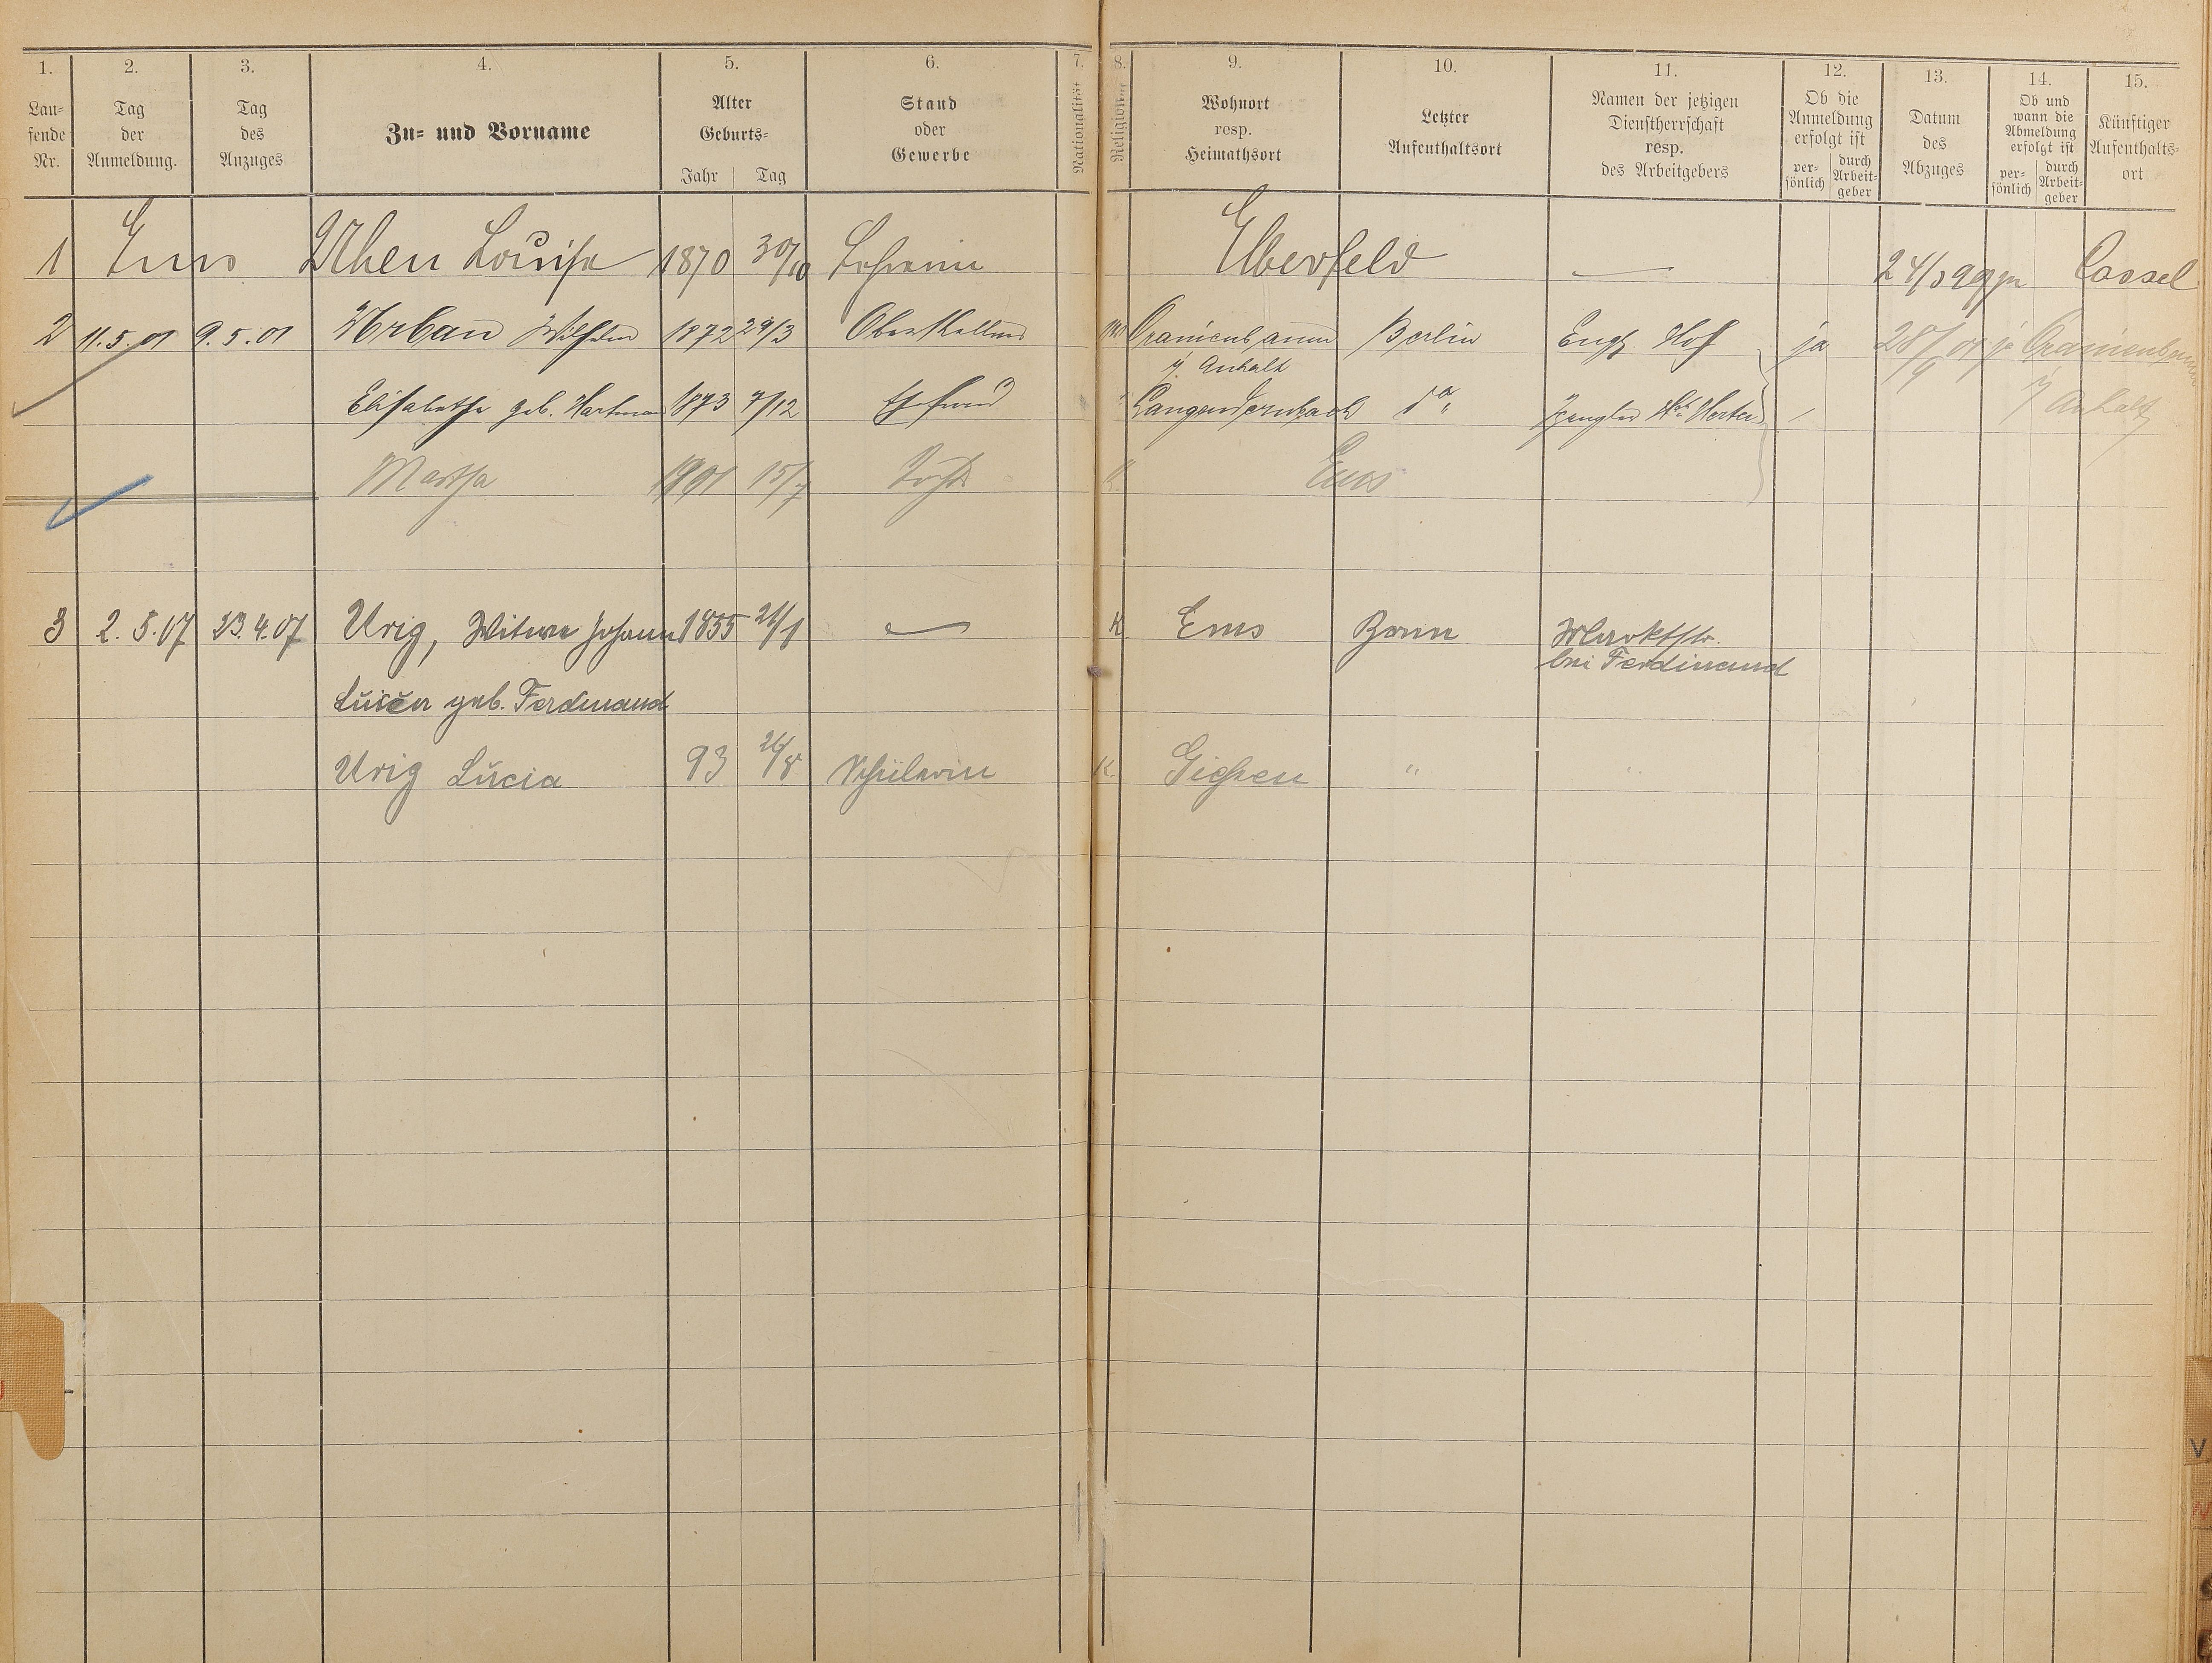 1. 2. 3. 4. 5. 6. 7. 8. 9. 10. 11. 12. 13. 14. 15.
Lau=
fende
Nr.
Tag
der
Anmeldung.
Tag
des
Anzuges
Zu= und Vorname
Alter
Geburts=
Jahr Tag
Stand
oder
Gewerbe
Nationalität
Religion
Wohnort
resp.
Heimathsort
Letzter
Aufenthaltsort
Namen der jetzigen
Dienstherrschaft
resp.
des Arbeitgebers
Ob die
Anmeldung
erfolgt ist
per=
sönlich
durch
Arbeit=
geber
Datum
des
Abzuges
Ob und
wann die
Abmeldung
erfolgt ist
per=
sönlich
durch
Arbeit=
geber
Künftiger
Aufenthalts=
ort
1 Ems Uhen Louise 1870 30/10 Lehrerin Elberfeld — Cassel
2 11.5.01 9.5.01 Urban Wilhelm 1872 29/3 Oberkellner Oranienbaum Berlin Engl. Hof ja 28/9 01 ja Oranienbaum
i/ Anhalt i/ Anhalt
Elisabethe geb. Hartmann 1873 7/12 Ehefrau Langendernbach do
Martha 1901 15/7 Tocht. K. Ems
3 2.5.07 23.4.07 Urig, Witwe Johann 1855 21/1 — K Ems Bonn Marktstr.
bei Ferdinand
geb. Ferdinand
Urig Lucia 93 26/8 Schülerin K. Gießen " "
V